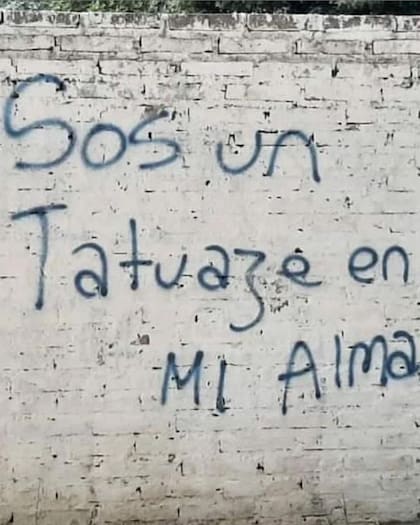 Sos un
Tatuaze en
MI Alma